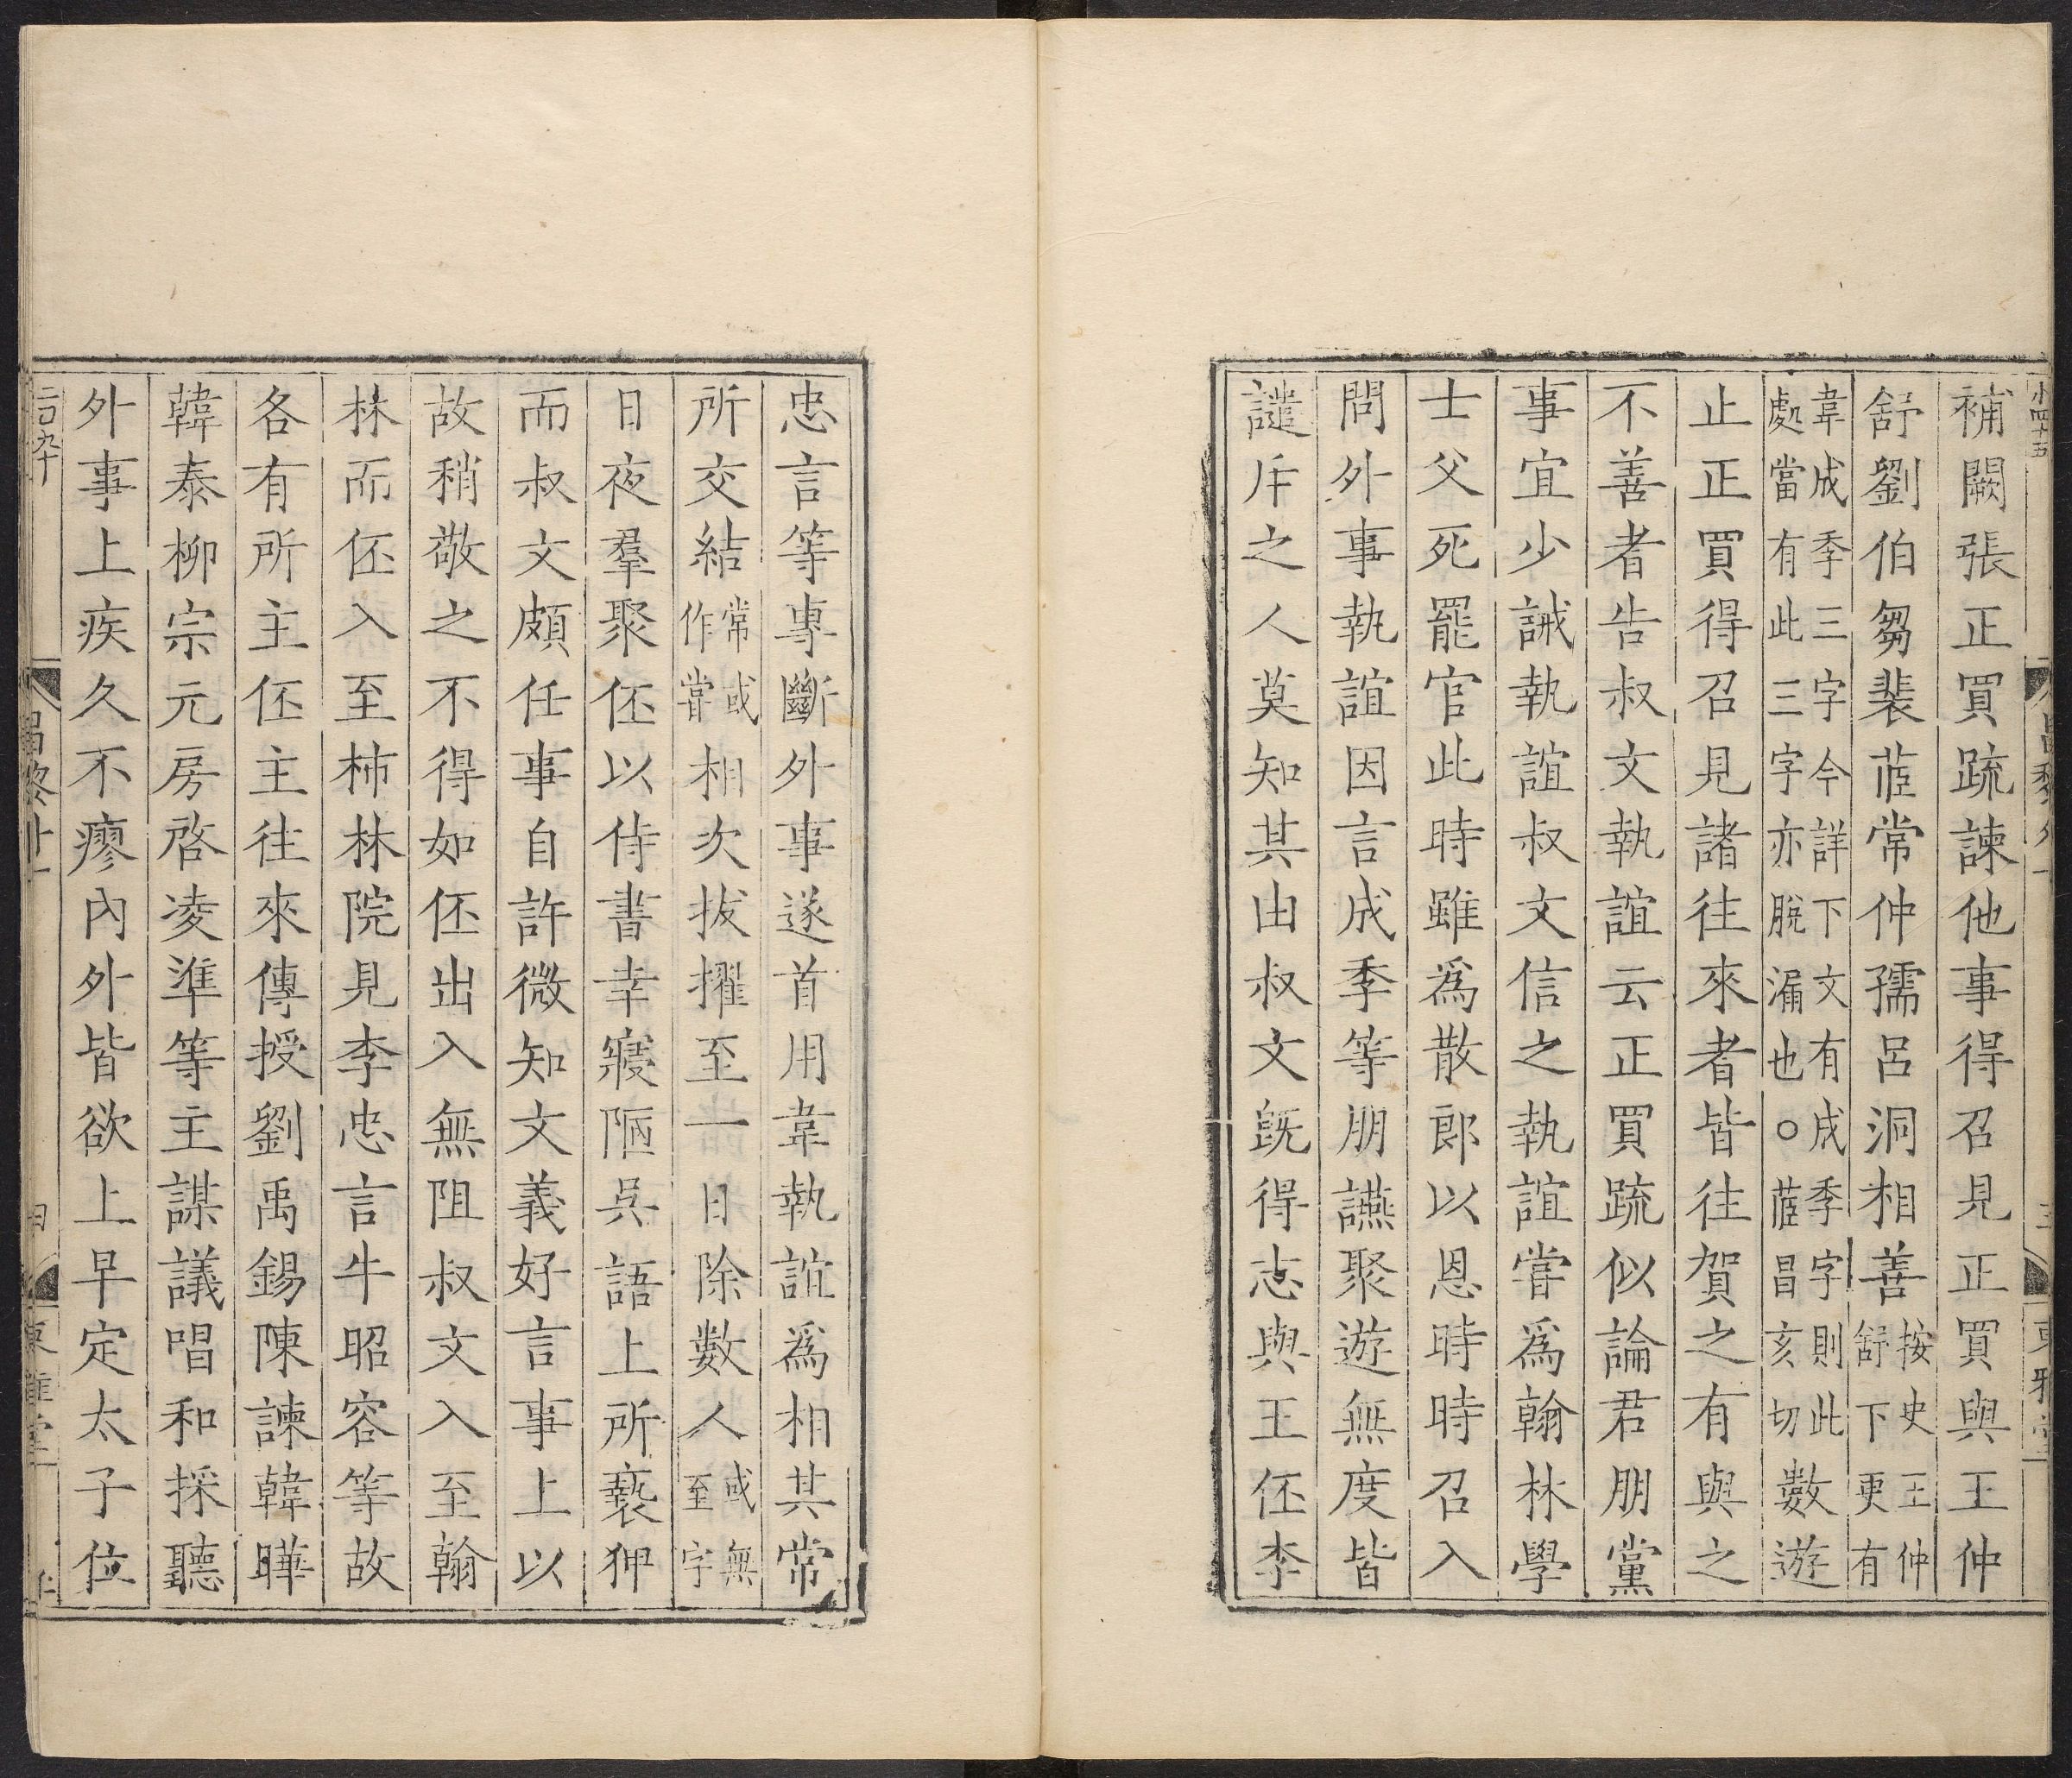 補闕張正買疏諫他事得召見正買與王仲
舒劉伯芻裴茝常仲孺呂洞相善按史王仲舒下更有
韋成季三字今詳下文有成季字則此處當有此三字亦脫漏也○茝昌亥切數遊
止正買得召見諸往來者皆往賀之有與之
不善者告叔文執誼云正買疏似論君朋黨
事宜少誡執誼叔文信之執誼嘗爲翰林學
士父死罷官此時雖爲散郎以恩時時召入
問外事執誼因言成季等朋讌聚遊無度皆
譴斥之人莫知其由叔文旣得志與王伾李
忠言等專斷外事遂首用韋執誼爲相其常
所交結常或作嘗相次拔擢至一日除數人或無至字
日夜羣聚伾以侍書幸寢陋吳語上所褻狎
而叔文頗任事自許微知文義好言事上以
故稍敬之不得如伾出入無阻叔文入至翰
林而伾入至柿林院見李忠言牛昭容等故
各有所主伾主往來傳授劉禹錫陳諫韓曄
韓泰柳宗元房啓凌準等主謀議唱和採聽
外事上疾久不瘳內外皆欲上早定太子位